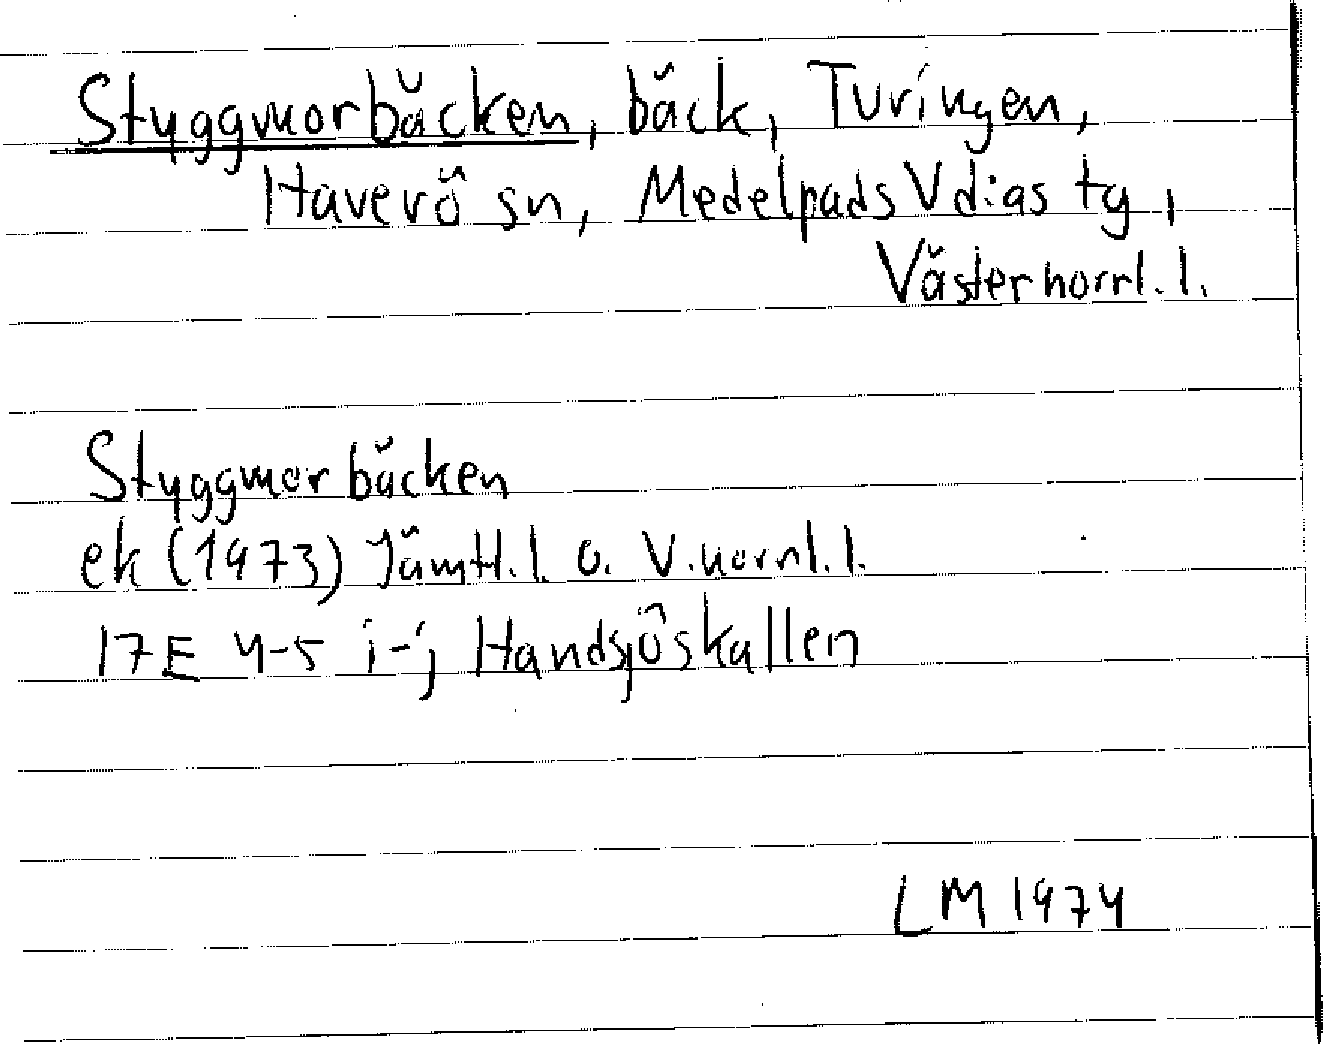 Styggmorbäcken, bäck, Turingen,
Haverö sn, Medelpads V d:as tg,
Västernorrl. l.
Styggmorbäcken
ek (1973) Jämtl. l. o. V.norrl. l.
17E 4-5 i-j Handsjöskallen
LM 1974